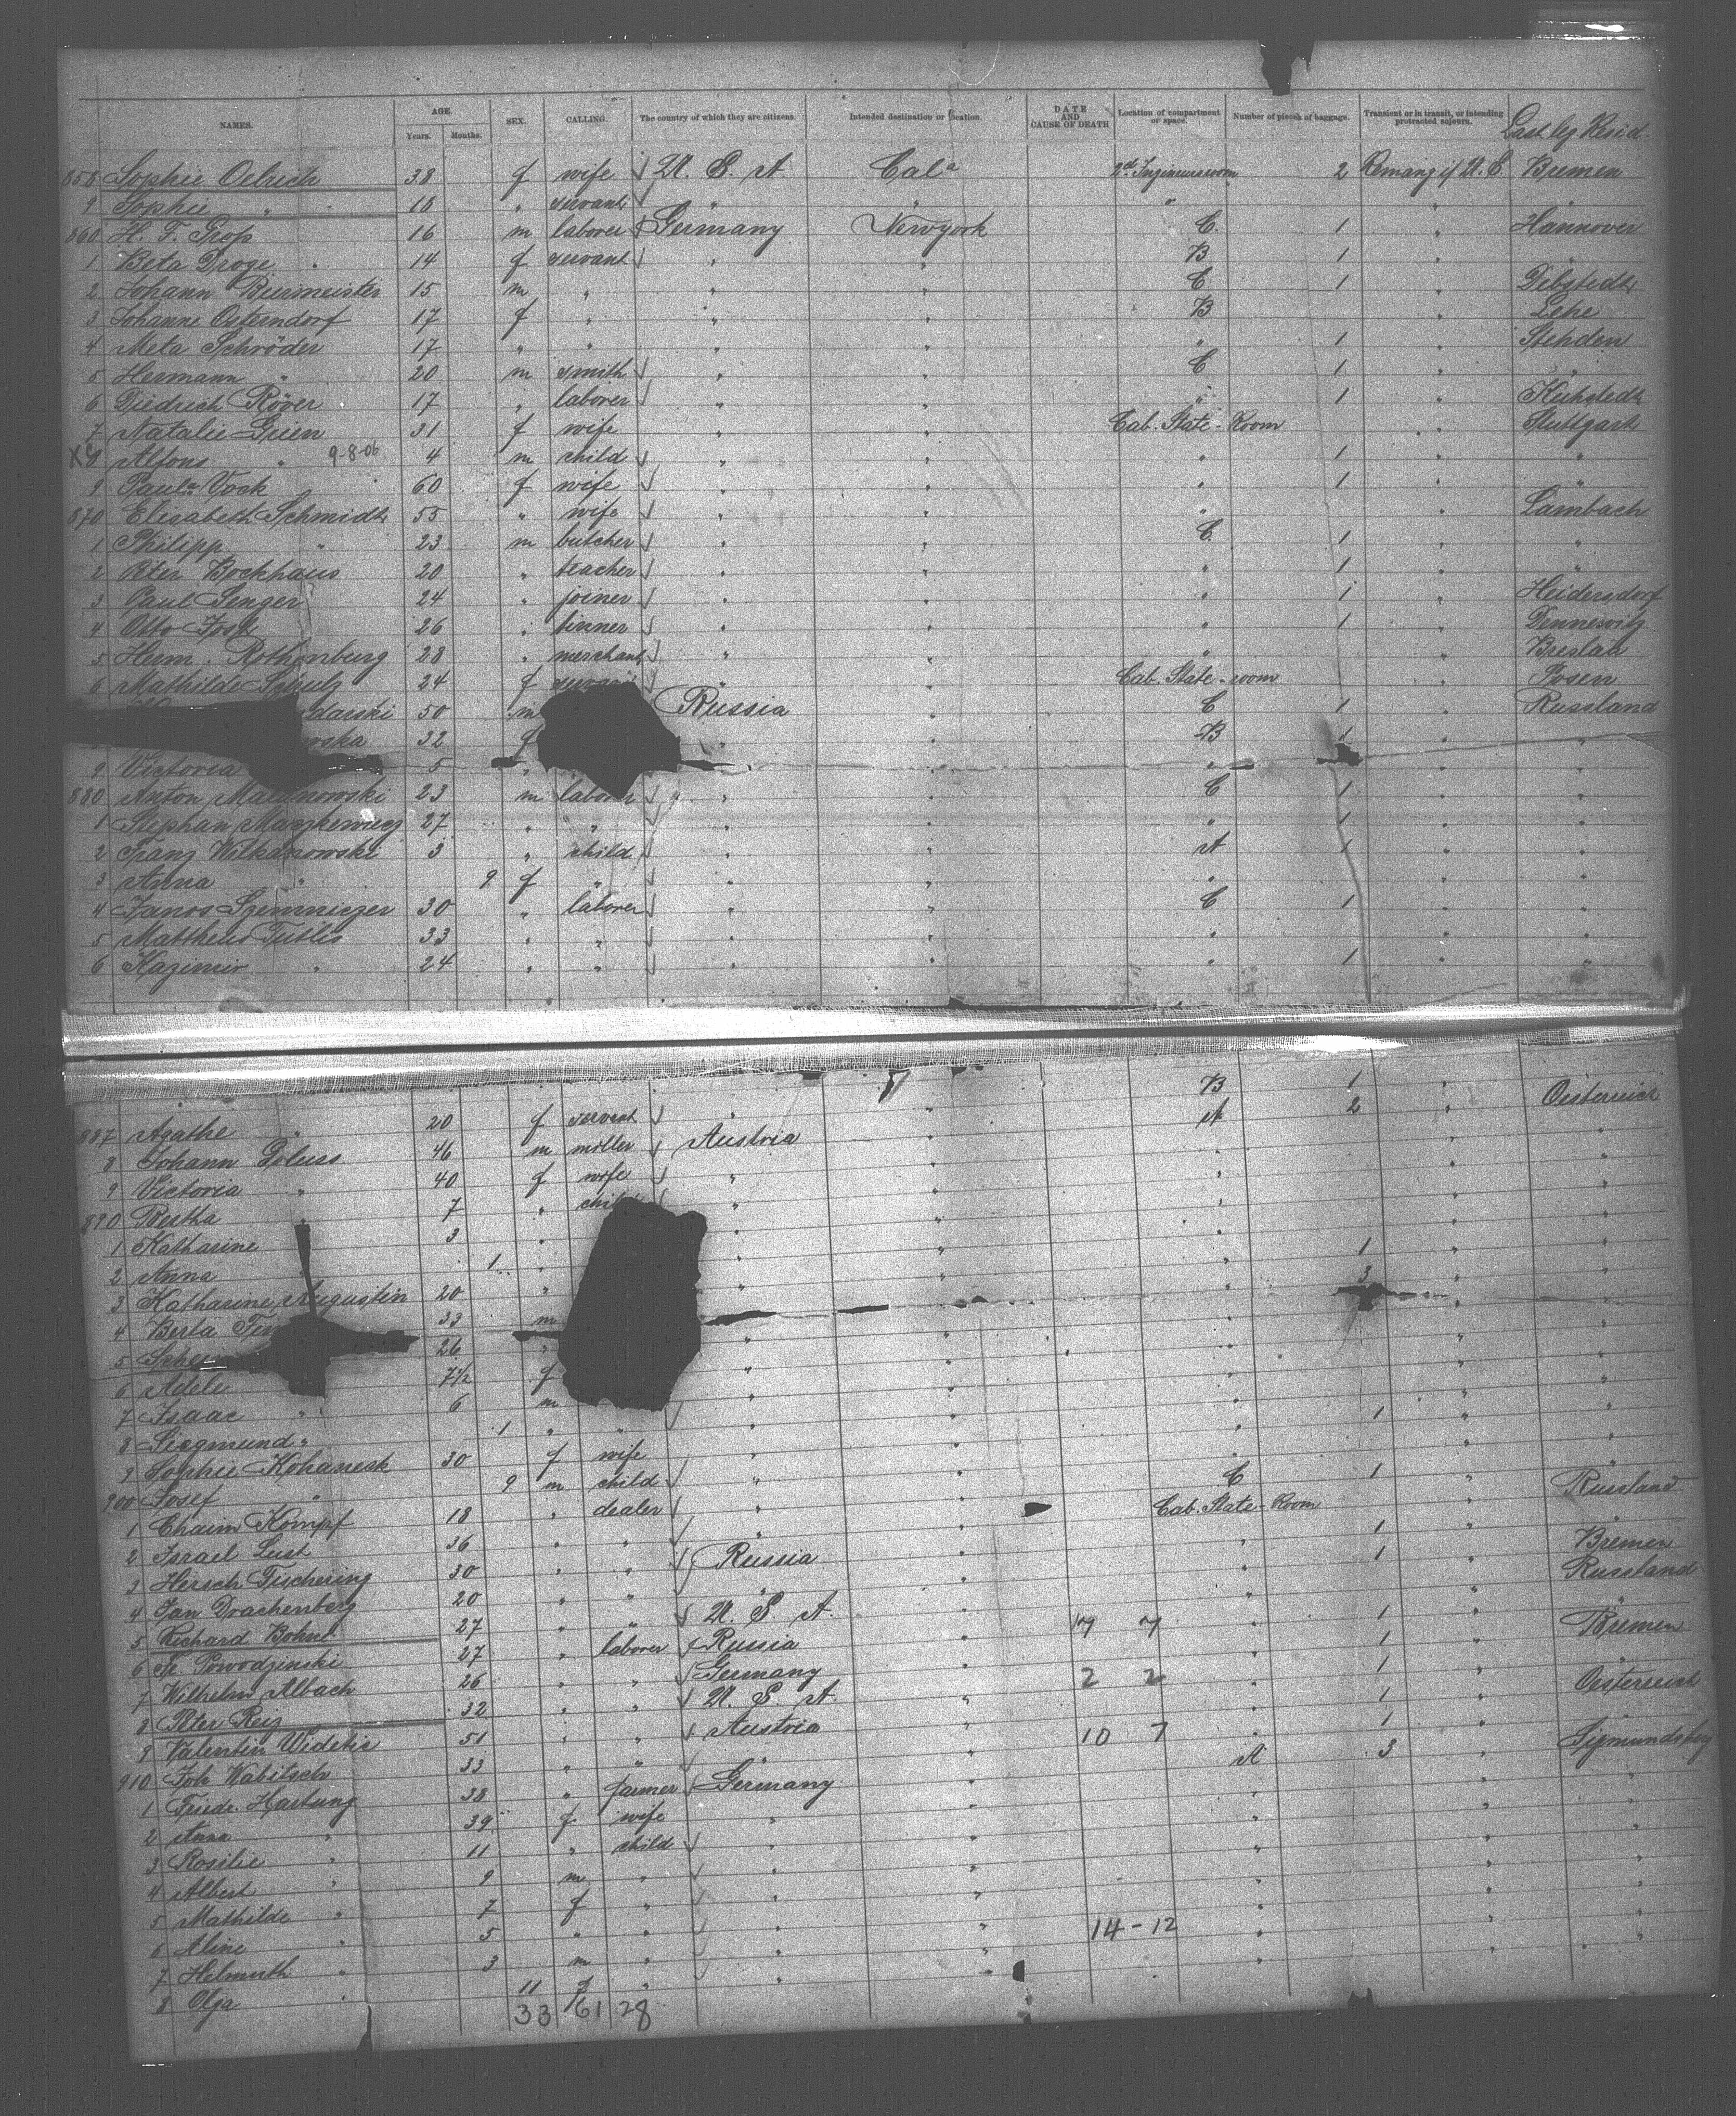 NAMES. AGE. Years. Months. SEX. CALLING. The country of which they are citizens. Intended destination or location. DATE AND CAUSE OF DEATH Location of compartment or space. Number of pieces of baggage. Transient or in transit, or intending protracted sojourn. Last leg. Resid.
858 Sophie Oelrich 38 f wife U. S. A Cala 2d Ingineursroom 2 Bremen
9 Sophie " 10 " servant " " " " "
860 H. F. Grop 16 m laborer Germany Newyork C. 1 " Hannover
1 Beta Droge 14 f servant " " B 1 " "
2 Johann Burmeister 15 m " " " C 1 " Debstedt
3 Johanne Osterndorf 17 f " " " B " Lehe
4 Meta Schröder 17 " " " " " 1 " Stehden
5 Hermann " 20 m smith " " C 1 " "
6 Diedrich Röver 17 " laborer " " " 1 " Kuhstedt
7 Natalie Grien 31 f wife " " Cab. State-Room " Stuttgart
X8 Alfons " 9-8-06 4 m child " " " 1 " "
9 Paula Vock 60 f wife " " " 1 " "
870 Elisabeth Schmidt 55 " wife " " " " Lambach
1 Philipp " 23 m butcher " " C. 1 " "
2 Peter Bockhaus 20 " teacher " " " 1 " "
3 Paul Senger 24 " joiner " " " 1 " Heidersdorf
4 Otto Jost 26 " tinner " " " 1 " Dennewitz
5 Herm. Rothenburg 28 " merchant " " " " Breslau
6 Mathilde Schulz 24 f " " Cab. State-room " Posen
darski 50 m Russia " C 1 " Russland
wska 32 f " " B 1 " "
9 Victoria 5 " " " " "
880 Anton Malinowski 23 m laborer " " C 1 " "
1 Stephan 27 " " " " " 1 " "
2 Franz Wilkanowski 3 " child " " A 1 " "
3 Anna " 9 f " " " " " "
4 Janos Szemniczer 30 " laborer " " C 1 " "
5 Mattheus Tutlis 33 " " " " " " "
6 Kazimir " 24 " " " " " 1 " "
887 Agathe " 20 f servant " " B 1 " "
8 Johann Goluss 46 m miller Austria " A 2 " Oesterreich
9 Victoria " 40 f wife " " " " "
890 Bertha " 7 " child " " " " "
1 Katharine " 3 " " " " " "
2 Anna " 1 " " " " " "
3 Katharine Augustin 20 " " " " 1 " "
4 Berta 33 m " " 3 " "
5 26 " " " " " "
6 Adele 7½ f " " " " "
7 Isaac " 6 m " " " " "
8 Siegmund " 1 " " " " " " "
9 Sophie Kohanesk 30 f wife " " " 1 " "
900 Josef " 9 m child " " " " "
1 Chaim Kompf 18 " dealer " " C 1 " "
2 Israel Lust 36 " " " " Cab. State-Room " Russland
3 Hersch Tischering 30 " " Russia " " 1 " "
4 Jan Drachenberg 20 " " " " 1 " Bremen
5 Richard Bohne 27 " " U. S. A. " " Russland
6 Fr. Powodzinski 27 " laborer Russia " 17 7 " 1 " "
7 Wilhelm Albach 26 " " Germany " " 1 " Bremen
8 Peter Reiz 32 " " U. S. A. " 2 2 " 1 "
9 Valentin Widetic 51 " " Austria " " 1 " Oesterreich
910 Joh Wabitsch 33 " " " " 10 7 " 1 " "
1 Friedr. Hartung 38 " farmer Germany " A 3 " Sigmundsburg
2 Anna " 39 f wife " " " " "
3 Rosilie " 11 " child " " " " "
4 Albert " 9 m " " " " " "
5 Mathilde " 7 f " " " " " "
6 Aline " 5 " " " " 14-12 " " "
7 Helmuth " 3 m " " " " " "
8 Olga " 11 f " " " "
33 61 28